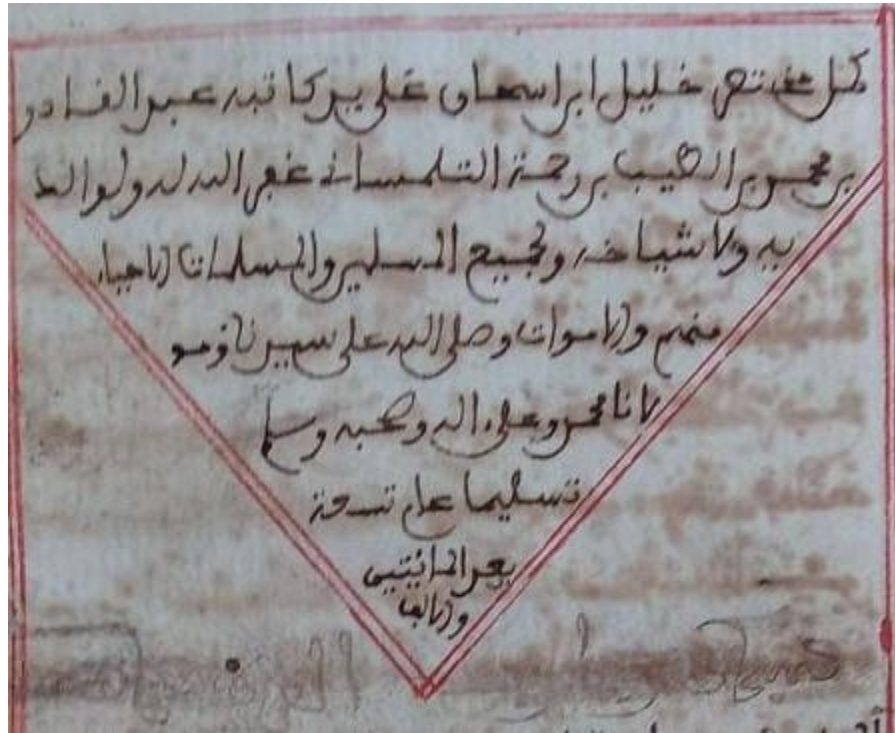 كمل مختصر خليل ابن اسحاق على يد كاتبه عبد القادر
بن محمد بن الطيب بن رحمة التلمساني غفر الله له ولوالد
يه ولاشياخه ولجميع المسلمين والمسلمات الاحياء
منهم والاموات وصلى الله على سيدنا ومو
لانا محمد وعلى اله وصحبه وسلم
تسليما عام تسعة
بعد المائتين
والالف